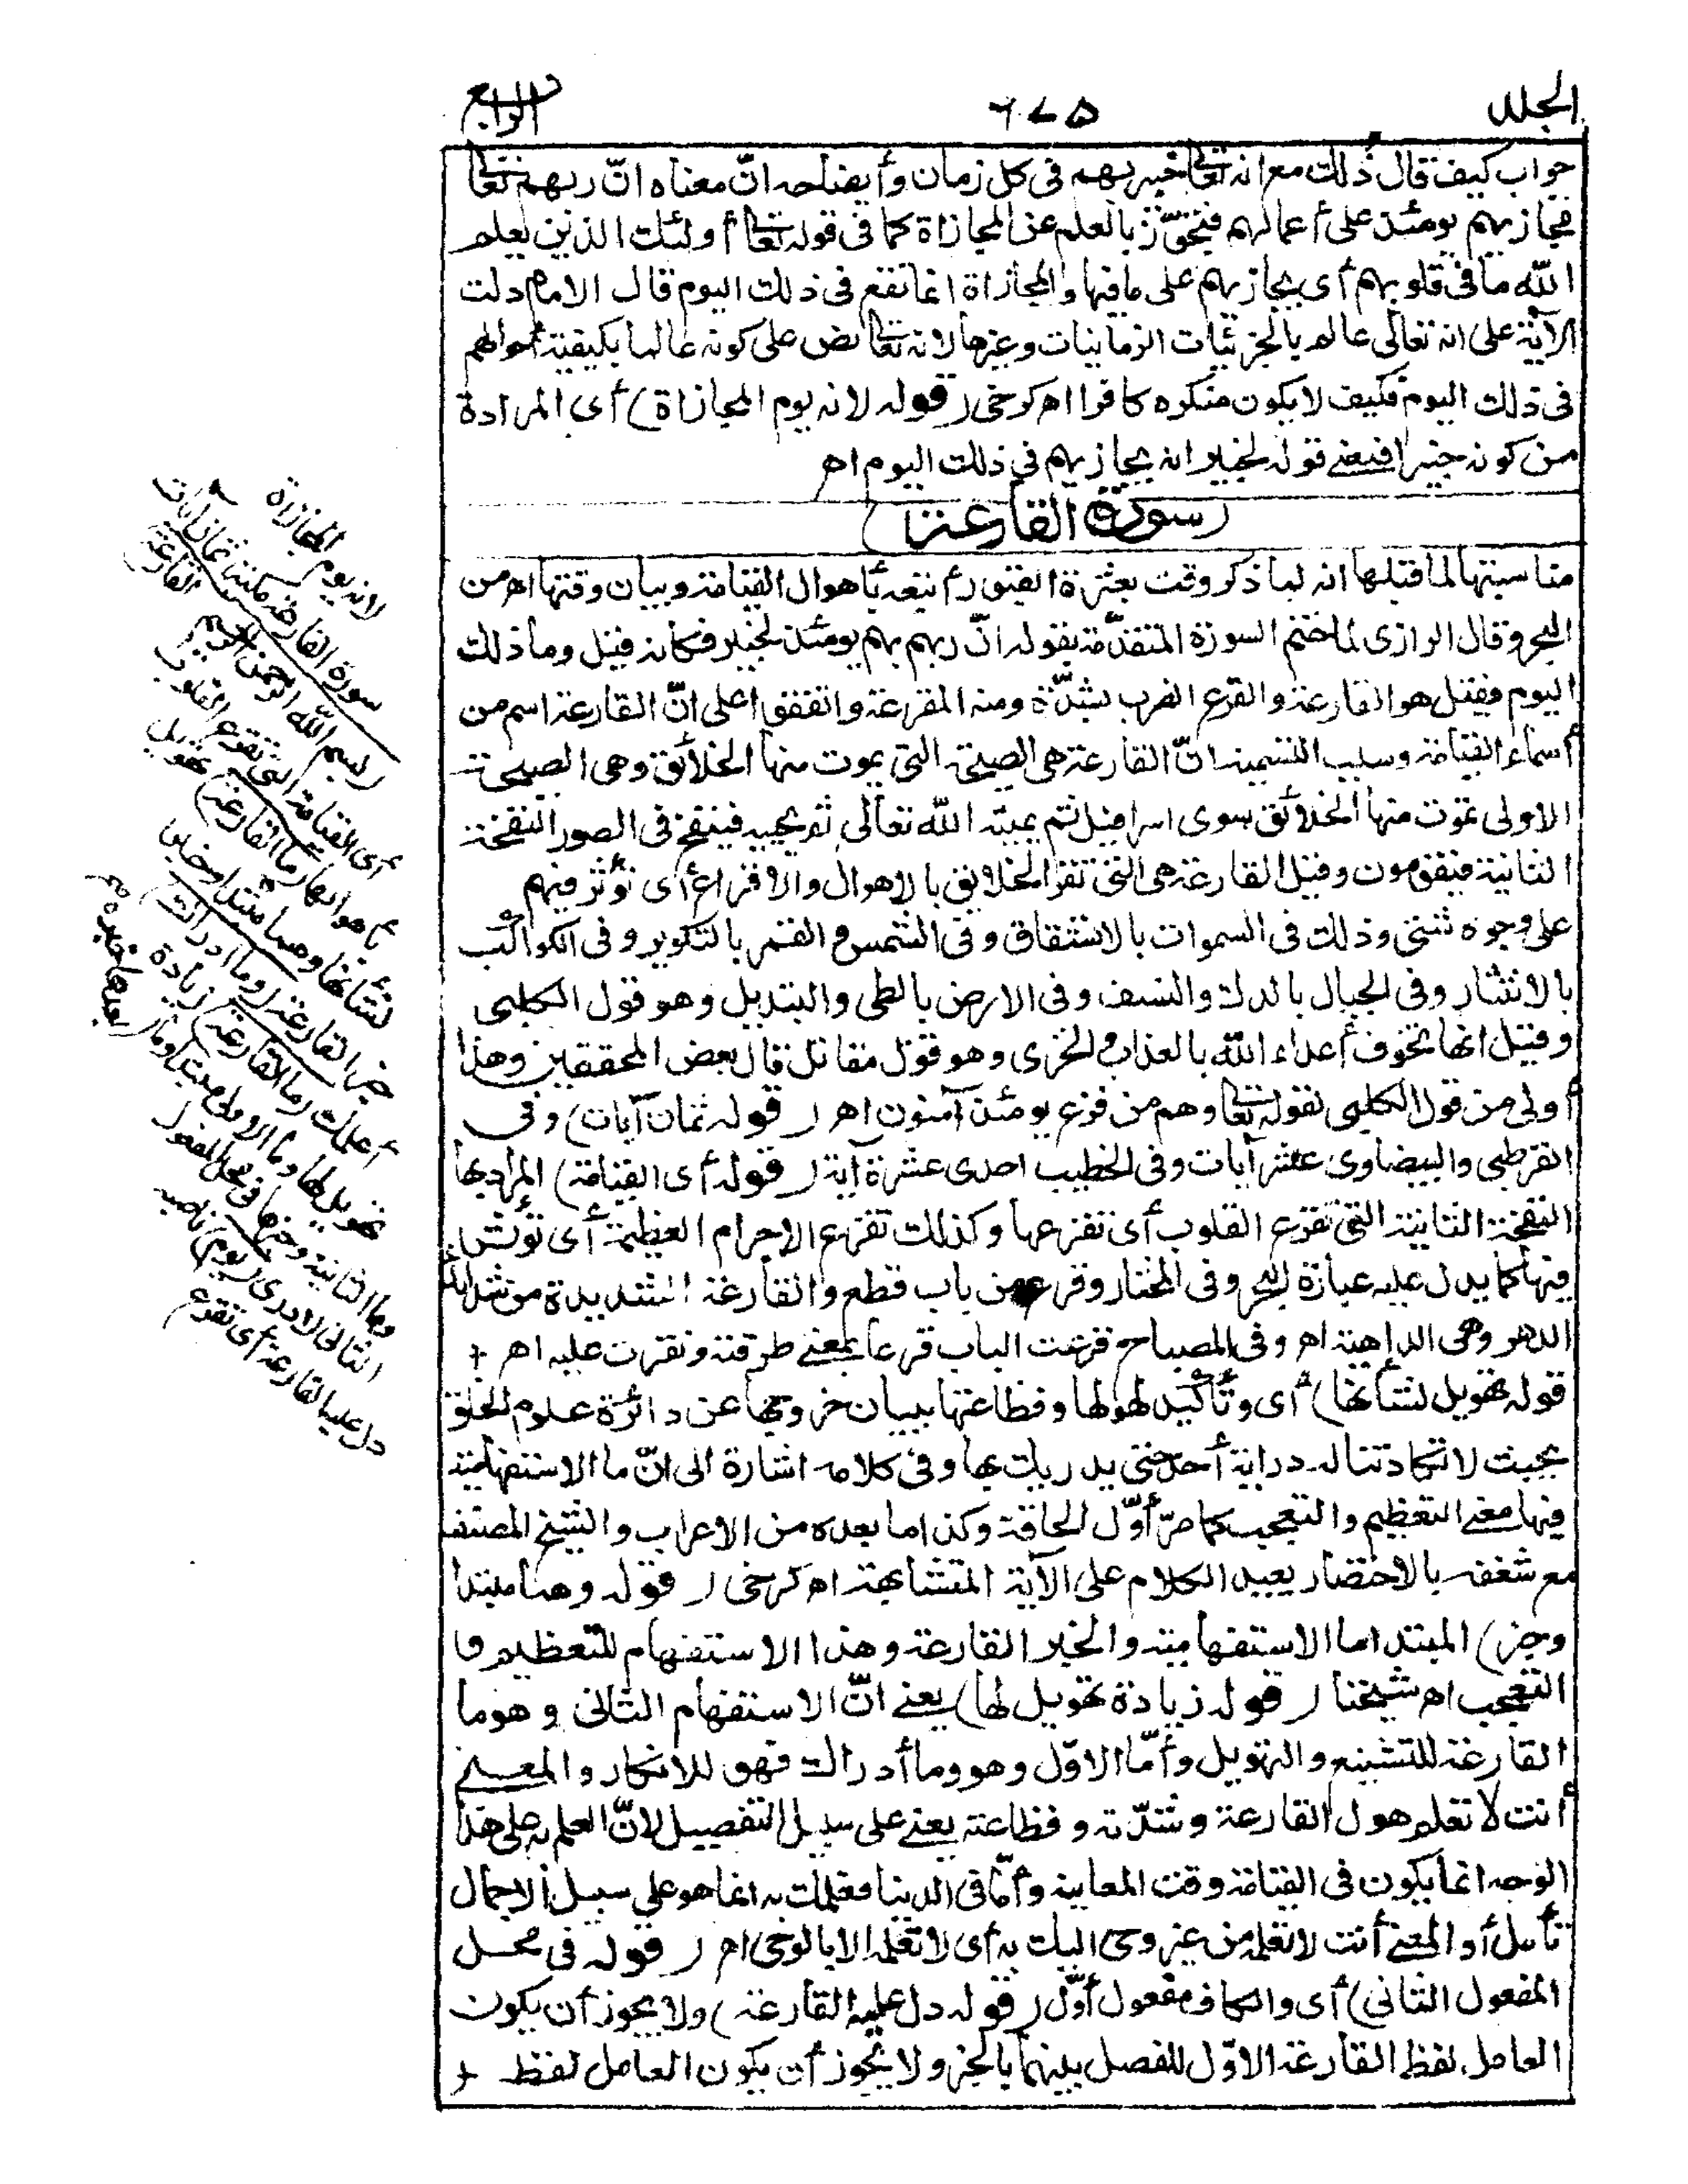 الجلد
٦٧٥
الرابع
جواب كيف قال ذلك مع انه تعالى خبير بهم فى كل زمان وأيضاحه انّ معناه انّ ربهم تعالى
مجازيهم يومئذ على أعمالهم فتجوّز بالعلم عن المجازاة كما فى قوله تعالى أولئك الذين يعلم
الله ما فى قلوبهم أى يجازيهم على ما فيها والمجازاة انما تقع فى ذلك اليوم قال الامام دلت
الآية على انه تعالى عالم بالجزئيات الزمانيات وغيرها لانه تعالى نص على كونه عالما بكيفية أحوالهم
فى ذلك اليوم فكيف لا يكون منكره كافرا اهـ كرخى (قوله لانه يوم المجازاة) أى المرادة
من كونه خبيرا فمعنى قوله لخبير انه يجازيهم فى ذلك اليوم اهـ
(سورة القارعة)
مناسبتها لما قبلها انه لما ذكر وقت بعثرة القبور أتبعه بأهوال القيامة وبيان وقتها اهـ من
البحر وقال الرازى لما ختم السورة المتقدّمة بقوله انّ ربهم بهم يومئذ لخبير فكانه قيل وما ذلك
اليوم فقيل هو القارعة والقرع الضرب بشدّة ومنه المقرعة واتفقوا على انّ القارعة اسم من
أسماء القيامة وسبب التسمية انّ القارعة هى الصيحة التى يموت منها الخلائق وهى الصيحة
الاولى تموت منها الخلائق سوى اسرافيل ثم يميته الله تعالى ثم يحييه فينفخ فى الصور النفخة
الثانية فيقومون وقيل القارعة هى التى تقرع الخلائق بالاهوال والافزاع أى تؤثر فيهم
على وجوه شتى وذلك فى السموات بالانشقاق وفى الشمس والقمر بالتكوير وفى الكواكب
بالانتثار وفى الجبال بالدك والنسف وفى الارض بالطى والتبديل وهو قول الكلبى
وقيل انها تخوف أعداء الله بالعذاب والخزى وهو قول مقاتل قال بعض المحققين وهذا
أولى من قول الكلبى لقوله تعالى وهم من فزع يومئذ آمنون اهـ (قوله ثمان آيات) وفى
القرطبى والبيضاوى عشر آيات وفى الخطيب احدى عشرة آية (قوله أى القيامة) المراد بها
النفخة الثانية التى تقرع القلوب أى تفزعها وكذلك تقرع الاجرام العظيمة أى تؤثر
فيها كما يدل عليه عبارة البحر وفى المختار وقرع من باب قطع والقارعة الشديدة من شدائد
الدهر وهى الداهية اهـ وفى المصباح قرعت الباب قرعا بمعنى طرقته ونقرت عليه اهـ (
قوله تهويل لشأنها) أى وتأكيد لهولها وفظاعتها ببيان خروجها عن دائرة علوم الخلق
بحيث لا تكاد تناله دراية أحد حتى يدريك بها وفى كلامه اشارة الى انّ ما الاستفهامية
فيها معنى التعظيم والتعجب كما مرّ أوّل الحاقة وكذا ما بعده من الاعراب والشيخ المصنف
مع شغفه بالاختصار يعيد الكلام على الآية المتشابهة اهـ كرخى (قوله وهما مبتدا
وخبر) المبتدا ما الاستفهامية والخبر القارعة وهذا الاستفهام للتعظيم و
التعجب اهـ شيخنا (قوله زيادة تهويل لها) يعنى انّ الاستفهام الثانى وهو ما
القارعة للتشنيع والتهويل وأمّا الاوّل وهو وما أدراك فهو للانكار والمعنى
أنت لا تعلم هول القارعة وشدّته وفظاعته يعنى على سبيل التفصيل لانّ العلم به على هذا
الوجه انما يكون فى القيامة وقت المعاينة وأمّا فى الدنيا فعلمك به انما هو على سبيل الاجمال
تأمل أو المعنى أنت لا تعلمه من غير وحى اليك به أى لا تعلمه الا بالوحى اهـ (قوله فى محل
المفعول الثانى) أى والكاف مفعول أوّل (قوله دل عليه القارعة) ولا يجوز أن يكون
العامل لفظ القارعة الاوّل للفصل بينهما بالخبر ولا يجوز أن يكون العامل لفظ (
لانه يوم المجازاة
سورة القارعة مكية ثمان آيات
(بسم الله الرحمن الرحيم القارعة)
أى القيامة التى تقرع القلوب
بأهوالها (ما القارعة) تهويل
لشأنها وهما مبتدا وخبر
خبر القارعة (وما أدراك)
أعلمك (ما القارعة) زيادة
تهويل لها وما الاولى مبتدا وما بعدها خبره
وما الثانية وخبرها فى محل المفعول
الثانى لادرى (يوم) ناصبه
دل عليه القارعة أى تقرع